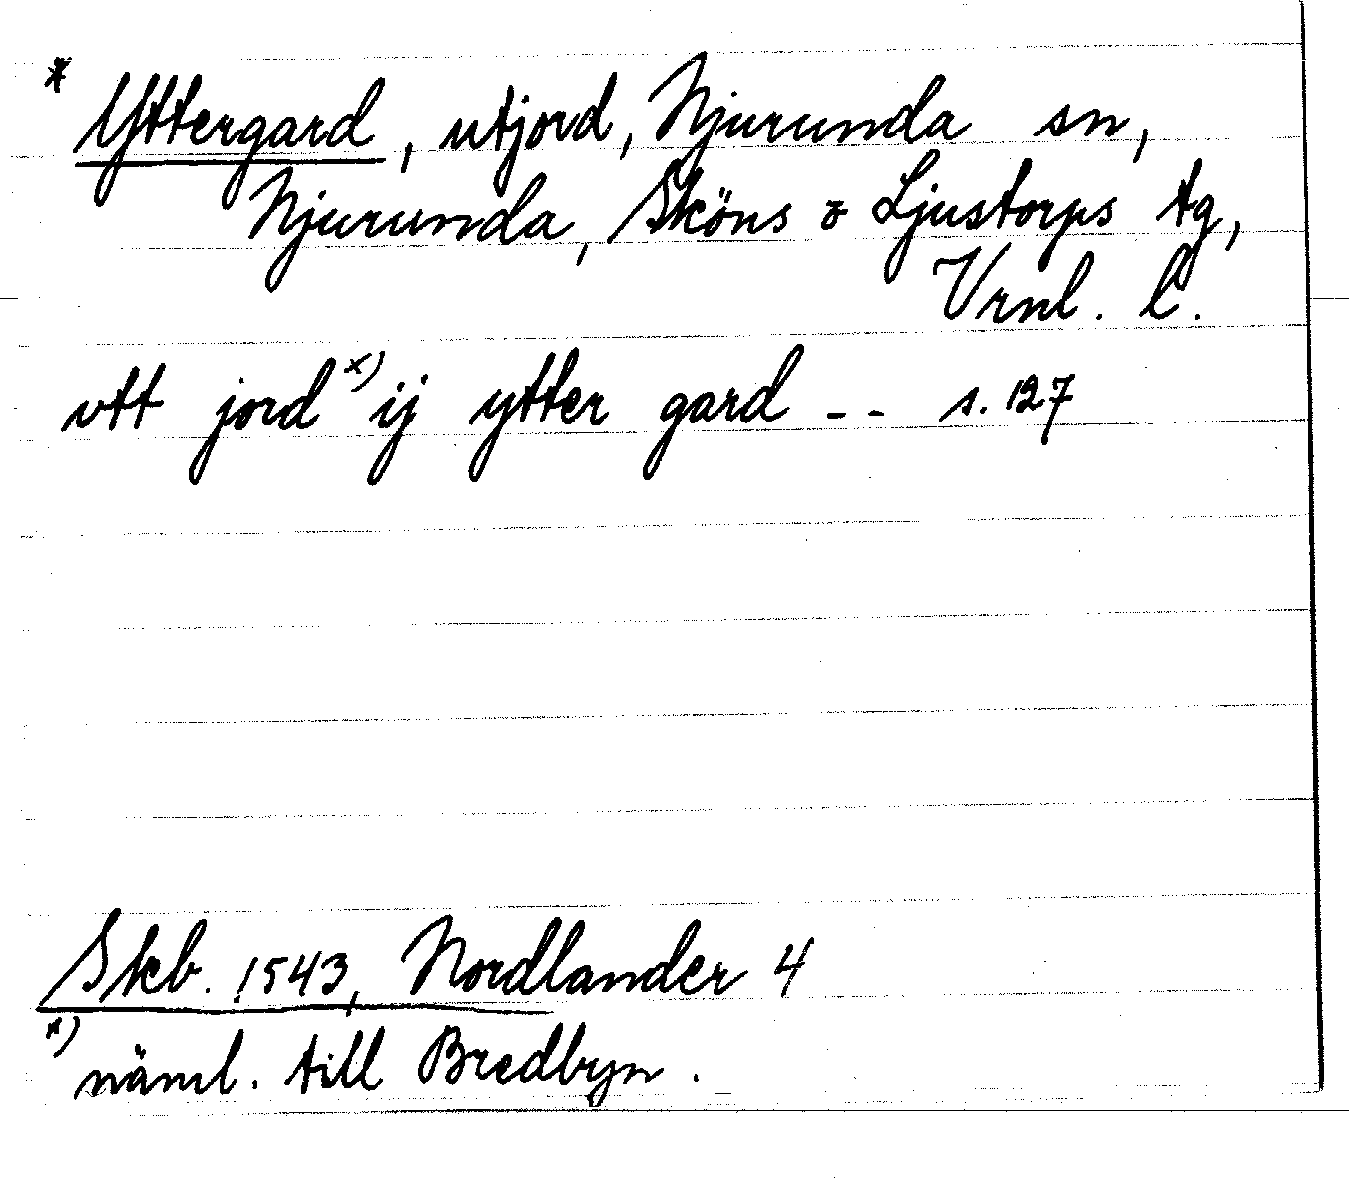 * Yttergard, utjord, Njurunda sn,
Njurunda, Sköns o Ljustorps tg,
Vrnl. l.
vtt jord x) ij ytter gard -- s. 127
Skb. 1543, Nordlander 4
x) näml. till Bredbyn.